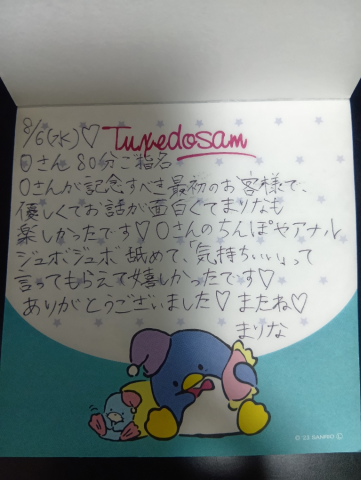 8/6(水)♡ Tuxedosam
〇さん 80分ご指名
〇さんが記念すべき最初のお客様で、
優しくてお話が面白くてまりなも
楽しかったです♡〇さんのちんぽやアナル
ジュボジュボ舐めて、「気持ちいい」って
言ってもらえて嬉しかったです♡
ありがとうございました♡またね♡
まりな
© 25 SANRIO Ⓛ